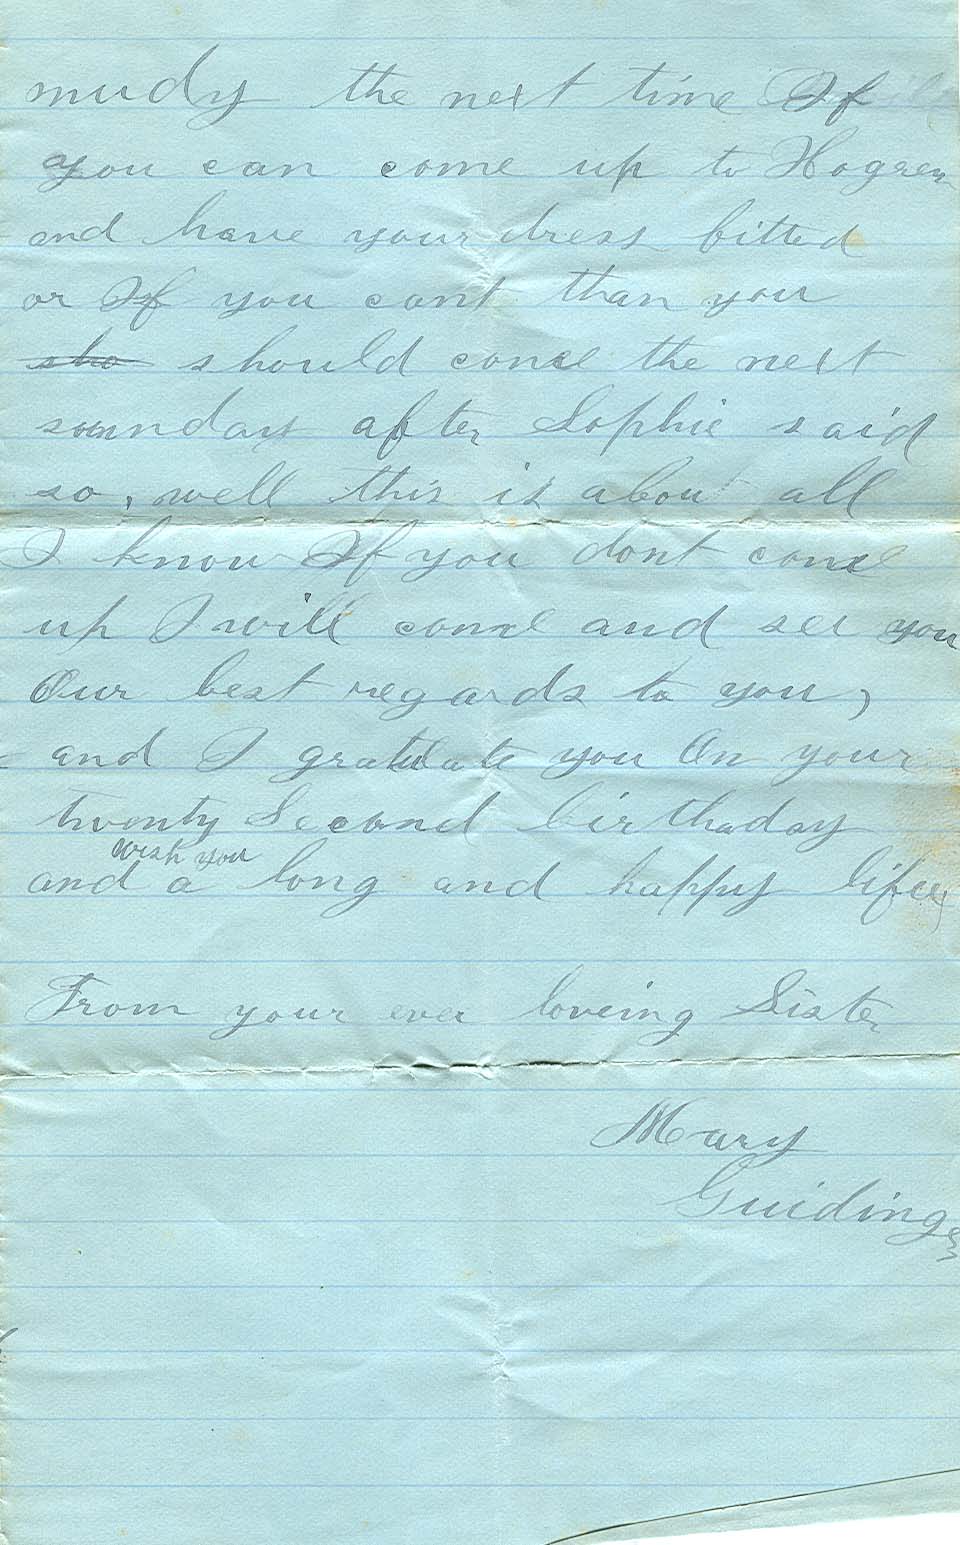 mudy the next time If
you can come up to Hogren
and have your dress fitted
or If you cant than you
sho should come the next
sunday after Sophie said
so, well this is about all
I know If you dont come
up I will come and see you
Our best regards to you,
and I gratulate you On your
twenty Second birthaday
wish you
and a long and happy life
From your ever loveing Sister
Mary
Guidinger